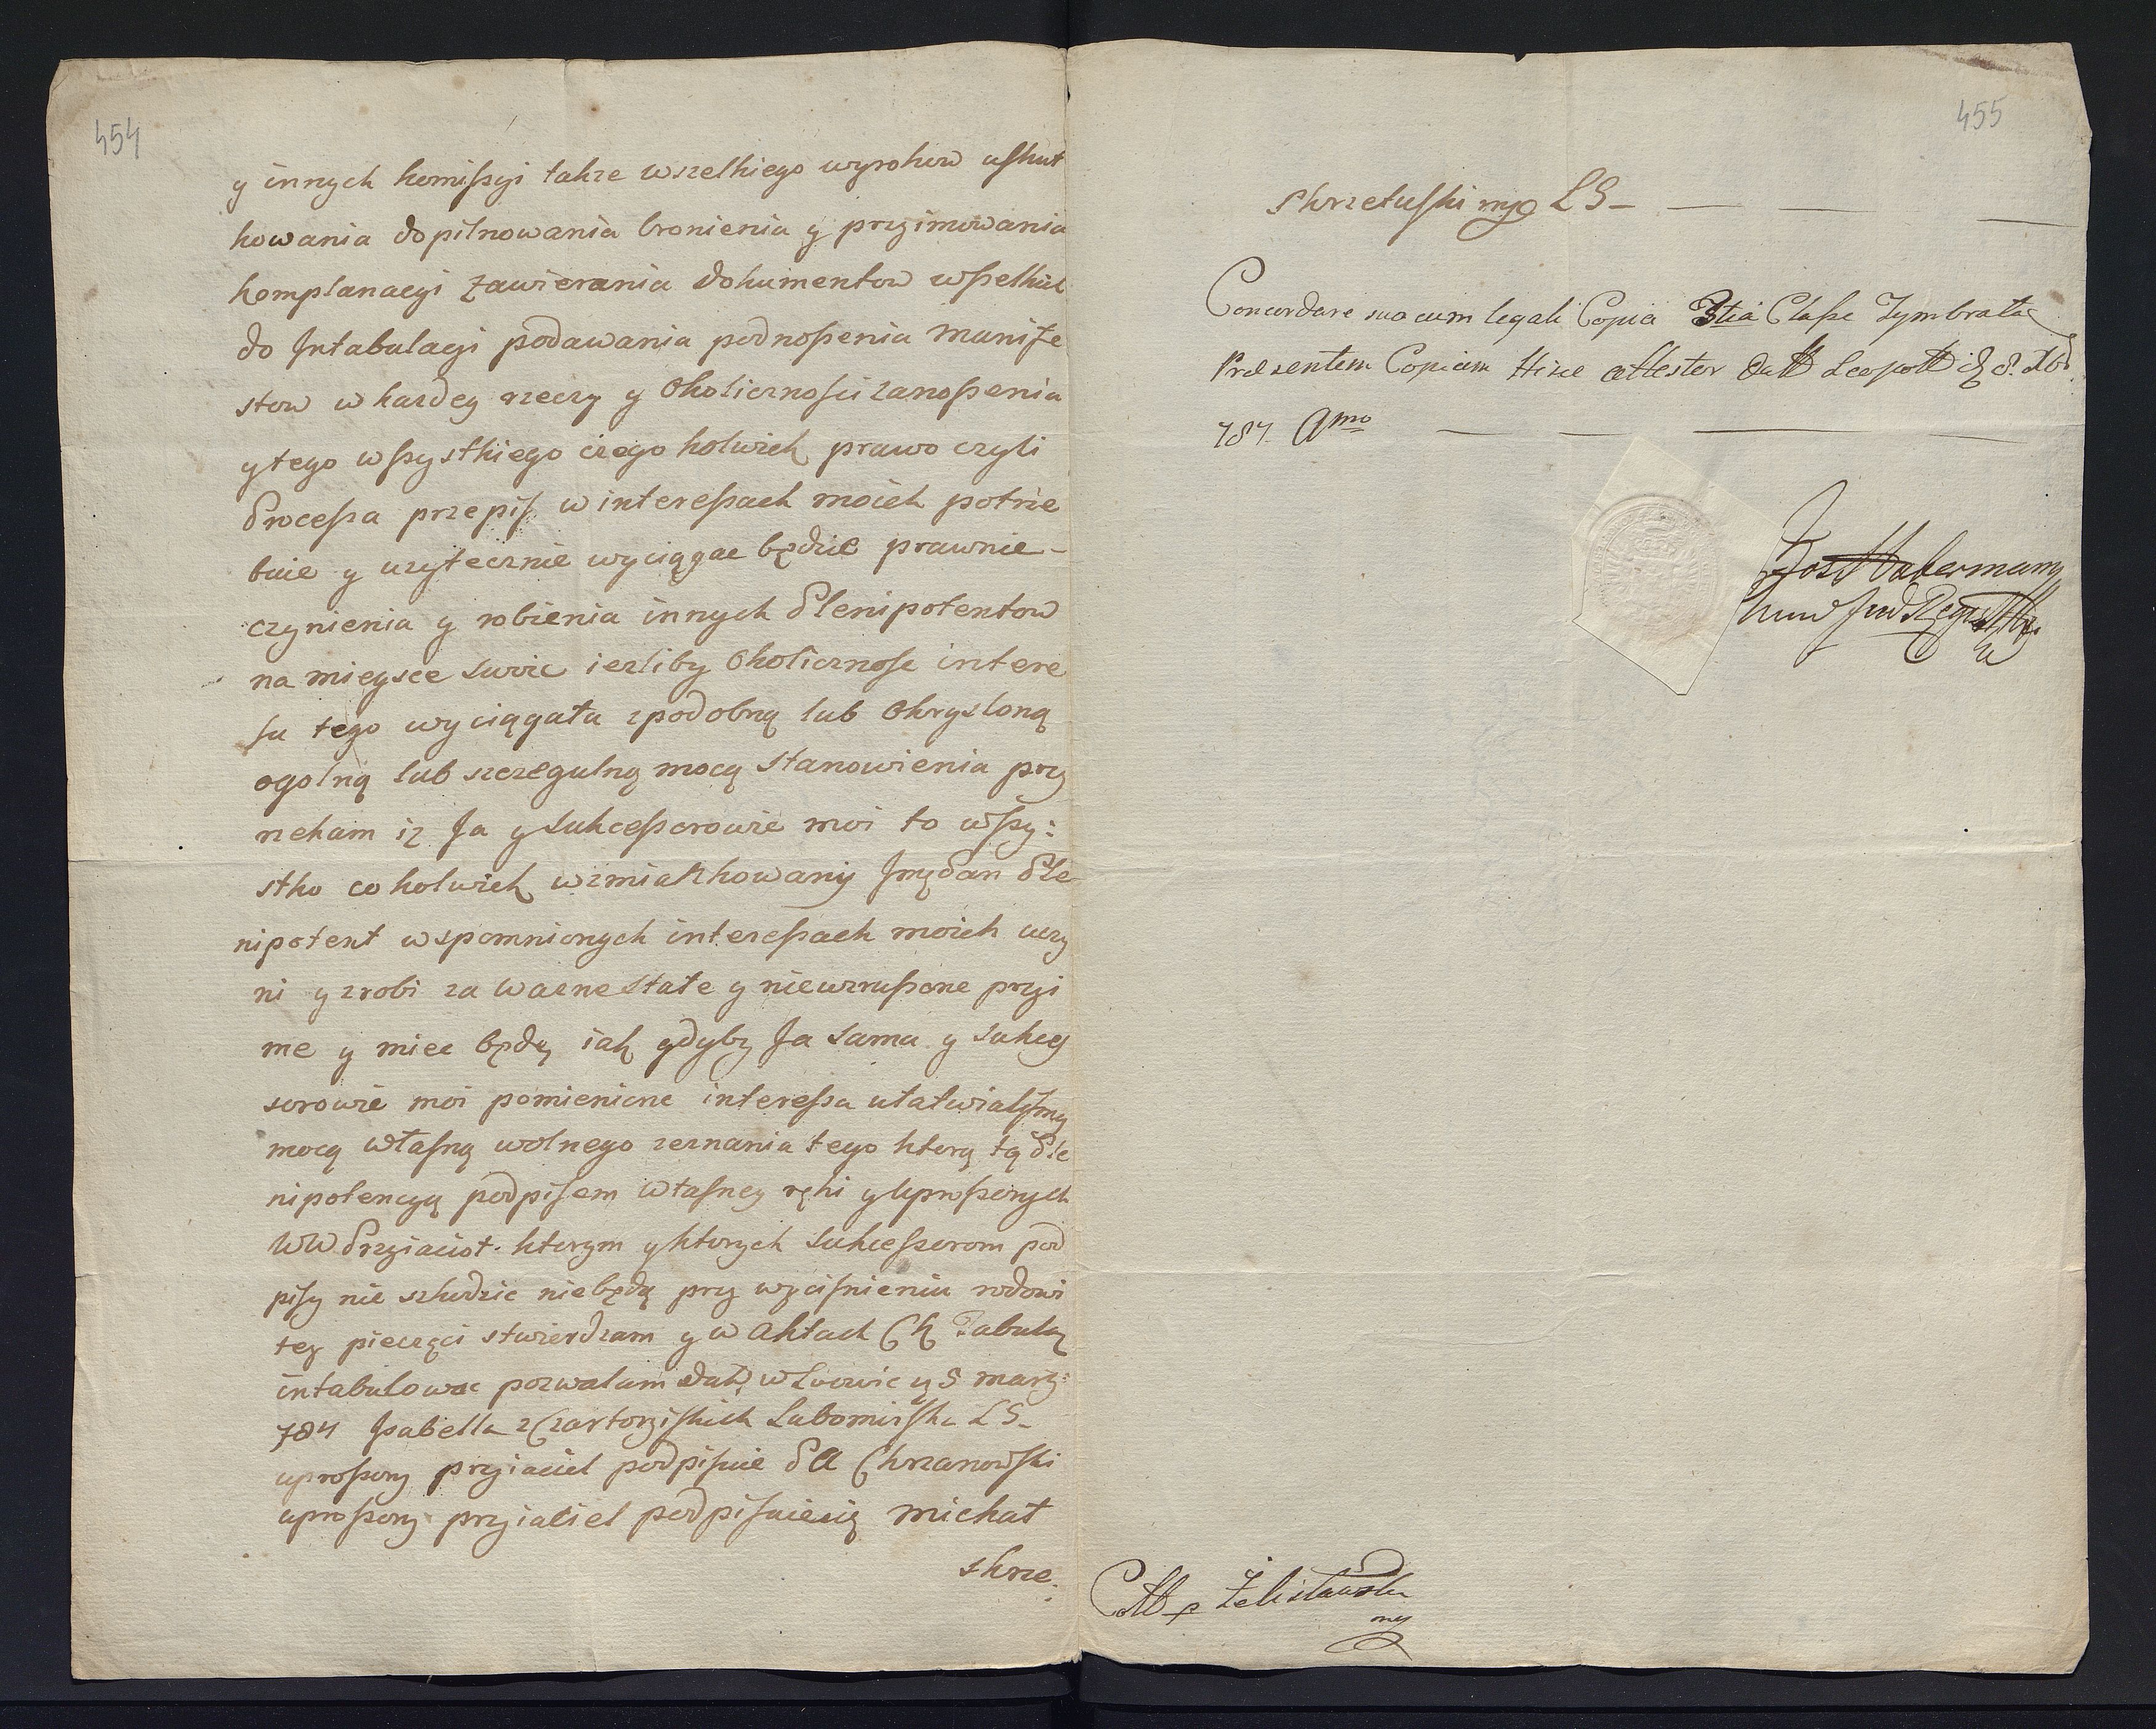 454
y innych komissyi takze wszelkiego wyrokow uskut
kowania dopilnowania bronienia y przyimowania
komplanacyi zawierania dokumentow wszelkich
do Jntabulacyi podawania podnoszenia Manife
stow w kazdey rzeczy y okolicznosci zanoszenia
y tego wszystkiego czego kolwiek prawo czyli
Processa przepis w interessach moich potrze
buie y uzytecznie wyciągac będzie prawnie -
czynienia y robienia innych Plenipotentow
na mieysce swoie iezliby okolicznosc intere
su tego wyciągała z podobną lub okrysloną
ogolną lub szczegulną mocą stanowienia przy
rzekam iz Ja y Sukcessorowie moi to wszy:
stko cokolwiek wzmiankowany Jmę Pan Ple
nipotent wspomnionych interessach moich uczy
ni y zrobi za wazne stałe y niewzruszone przyi
me y miec będę iak gdyby Ja sama y sukces
sorowie moi pomienione interessa ułatwialysmy
mocą własną wolnego zeznania tego ktorą tą Ple
nipotencyą podpisem własney ręki y uproszonych
WW Przyiacioł. ktorym y ktorych Sukcessorom pod
pisy nie szkodzic niebędą przy wycisnieniu rodowi
tey pieczęci stwierdzam y w Aktach CK Tabulą
intabulowac pozwalam Datt w Lwowie 5 marz:
784 Jsabella z Czartoryskich Lubomirska LS-
uproszony przyiaciel podpisuie PA Chrzanowski
uproszony przyiaciel podpisuie się Michał
Skrze:
455
Skrzetuski mp LS-
Concordare suo cum legali Copia 3tia Classe Tymbrata
Praesentem Copiam Hisce attestor Datt Leopoli 8. Xbr
787. Amo
Jos Habermann
Coll p Zelislawski
mp